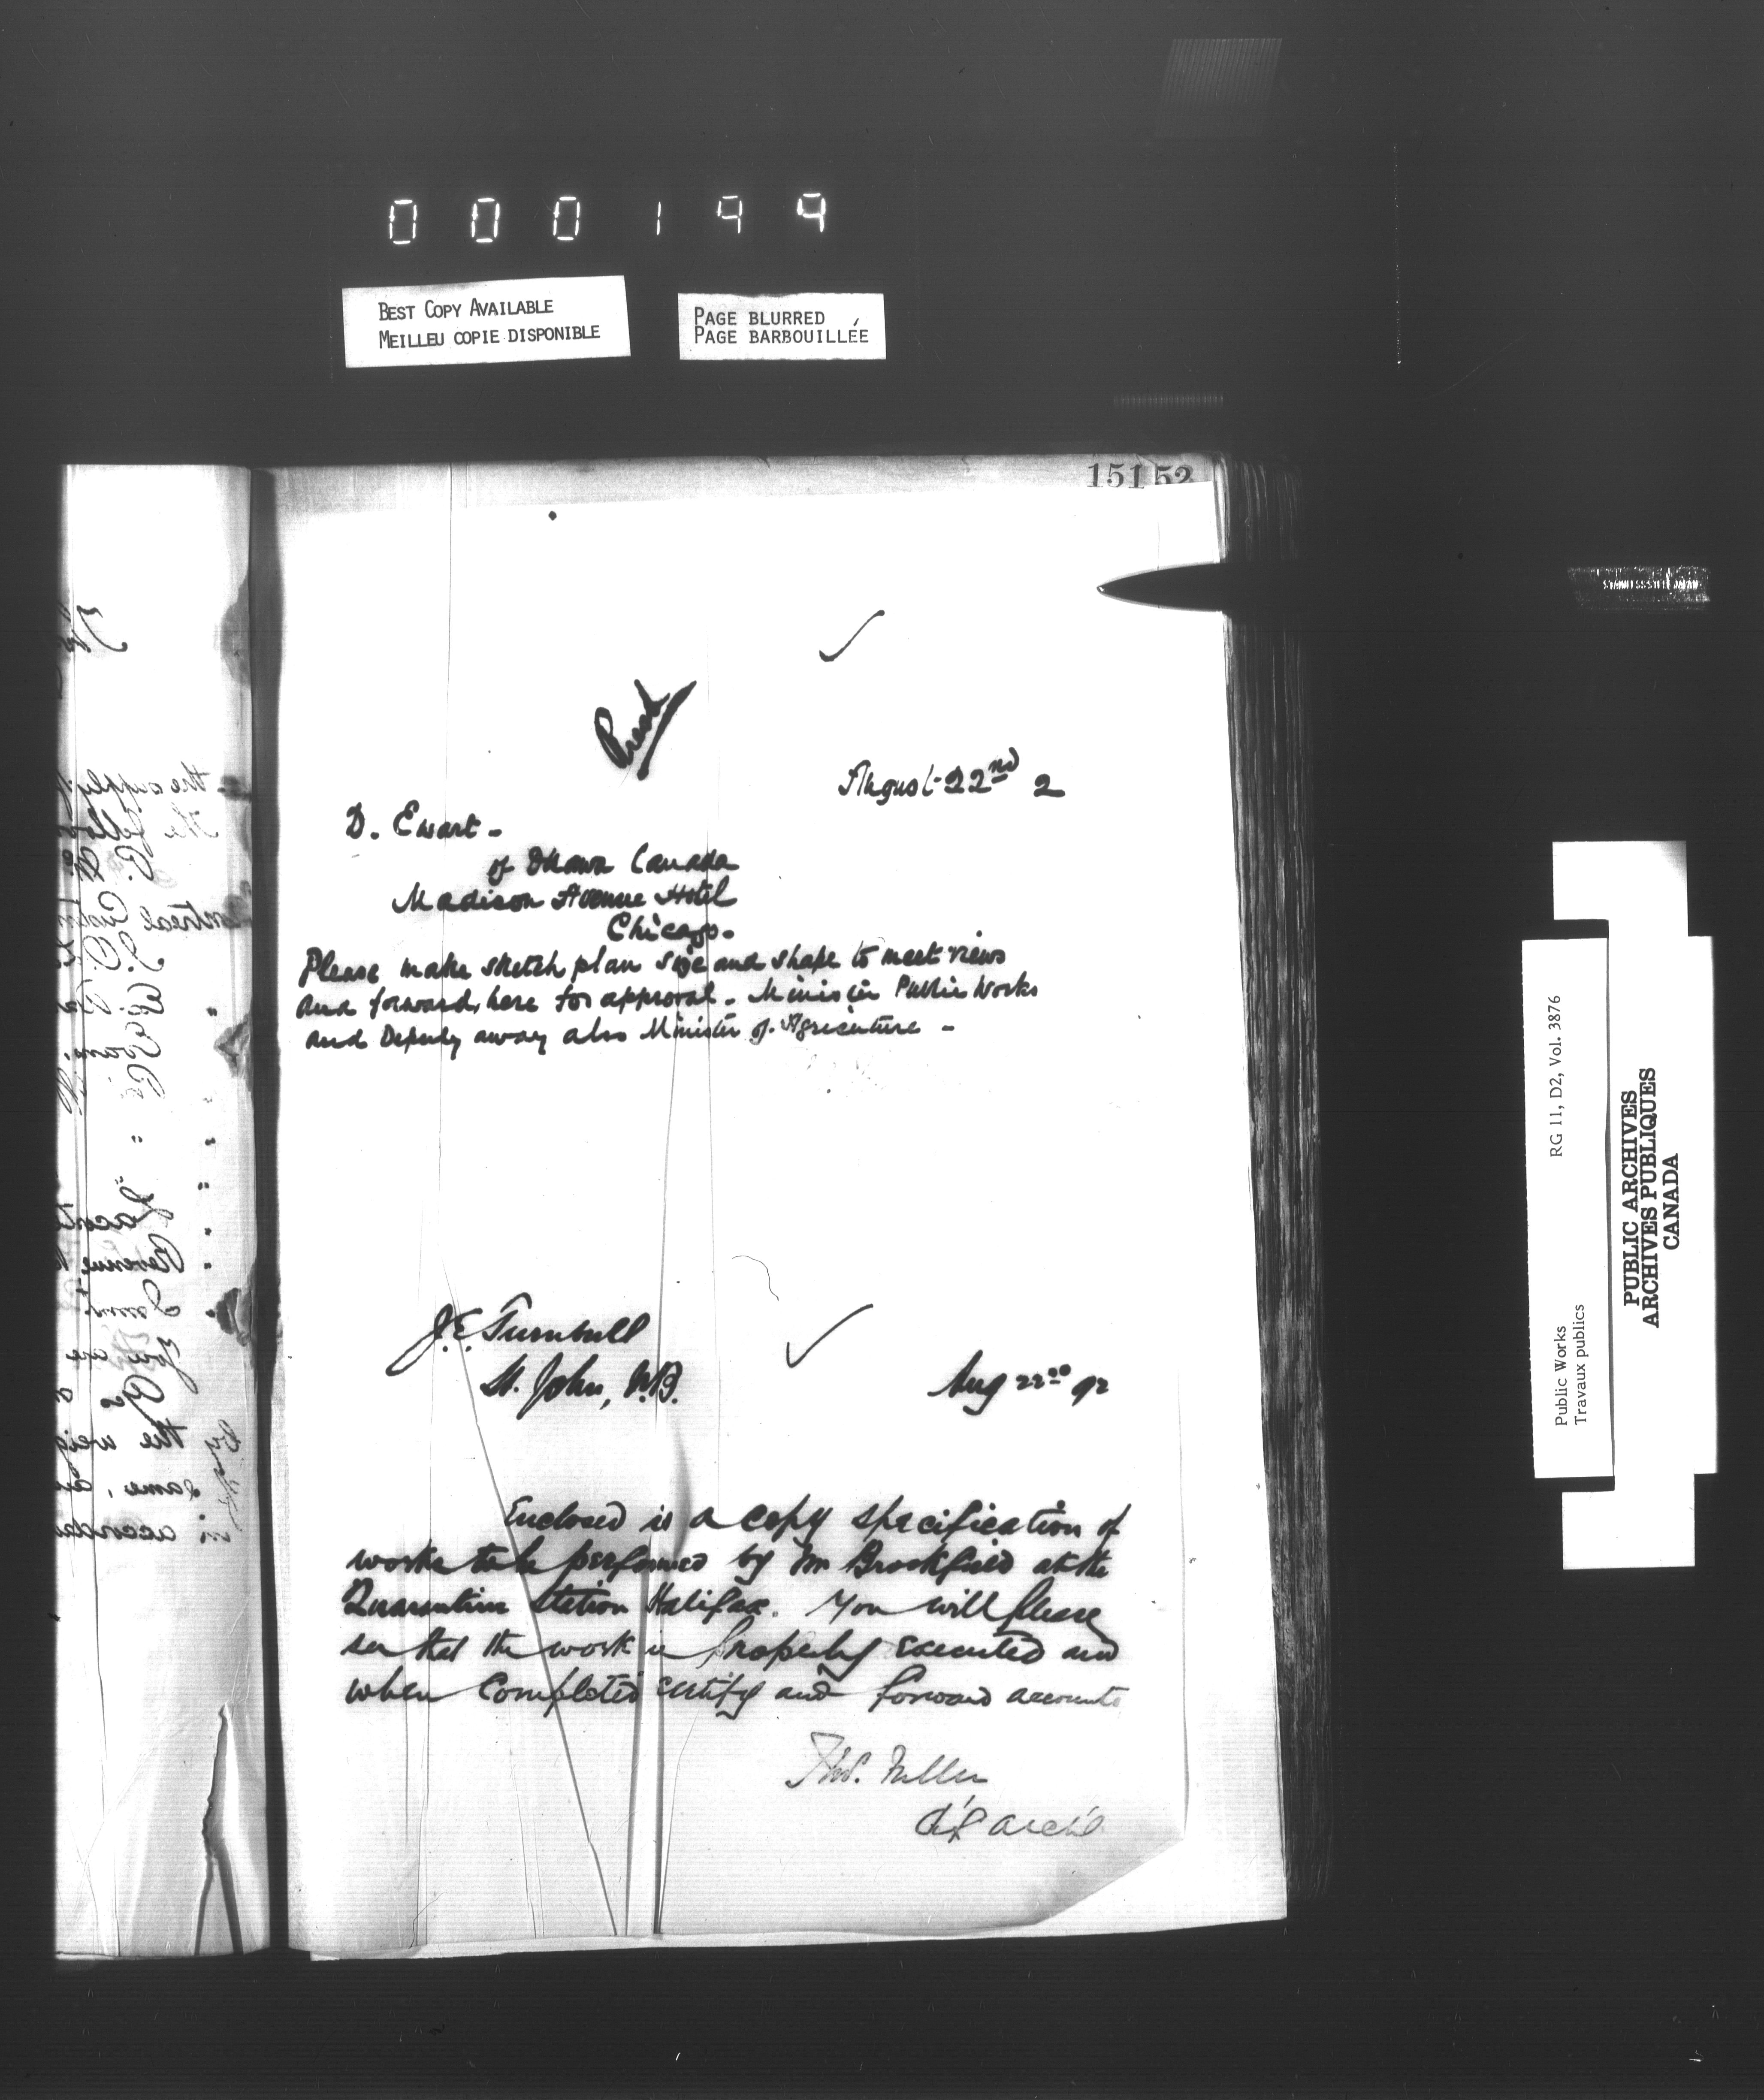 000199
BEST COPY AVAILABLE
MEILLEU COPIE DISPONIBLE
PAGE BLURRED
PAGE BARBOUILLÉE
151 52
August 22nd 2
D. Ewart -
of Ottawa Canada
Madison Avenue Hotel
Chicago -
Please make sketch plan size and shape to meet views
and forward here for approval. Minister Public Works
and Deputy away also Minister of Agriculture -
J.E. Turnbull
St. John, N.B.
Aug 22nd 92
Enclosed is a copy specification of
works to be performed by Mr Brookfield at the
Quarantine Station Halifax. You will please
see that the work is properly executed and
when completed certify and forward accounts
Thos. Fuller
Ch'f Arch't
STAINLESS STEEL JAPAN
Public Works
Travaux publics
RG 11, D2, Vol. 3876
PUBLIC ARCHIVES
ARCHIVES PUBLIQUES
CANADA